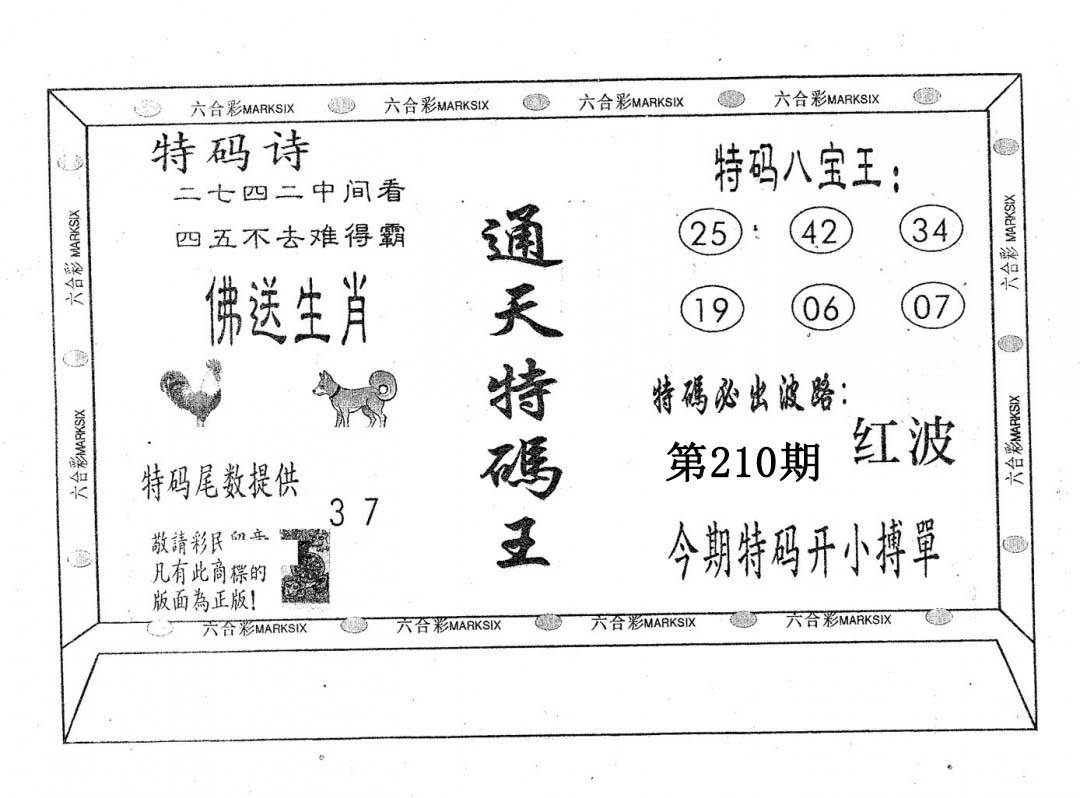 六合彩MARKSIX 六合彩MARKSIX 六合彩MARKSIX 六合彩MARKSIX
六合彩 MARKSIX
六合彩MARKSIX
特码诗
二七四二中间看
四五不去难得霸
佛送生肖
特码尾数提供
3 7
敬請彩民留意
凡有此商標的
版面為正版!
通天特碼王
特码八宝王:
25 42 34
19 06 07
特碼必出波路:
红波
第210期
今期特码开小搏單
六合彩 MARKSIX
六合彩MARKSIX
六合彩MARKSIX 六合彩MARKSIX 六合彩MARKSIX 六合彩MARKSIX